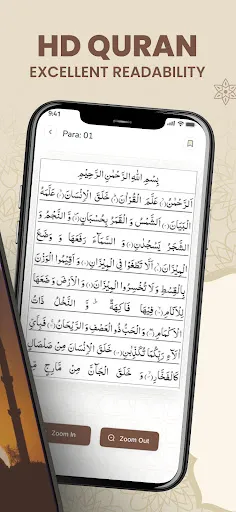 HD QURAN
EXCELLENT READABILITY
9:41
Para: 01
بِسْمِ اللهِ الرَّحْمٰنِ الرَّحِيْمِ
اَلرَّحْمٰنُ ۙ﴿۱﴾ عَلَّمَ الْقُرْاٰنَ ؕ﴿۲﴾ خَلَقَ الْاِنْسَانَ ۙ﴿۳﴾ عَلَّمَهُ
الْبَيَانَ ﴿۴﴾ اَلشَّمْسُ وَ الْقَمَرُ بِحُسْبَانٍ ﴿۵﴾ وَّ النَّجْمُ وَ
الشَّجَرُ يَسْجُدٰنِ ﴿۶﴾ وَ السَّمَآءَ رَفَعَهَا وَ وَضَعَ
الْمِيْزَانَ ۙ﴿۷﴾ اَلَّا تَطْغَوْا فِى الْمِيْزَانِ ﴿۸﴾ وَ اَقِيْمُوا الْوَزْنَ
بِالْقِسْطِ وَ لَا تُخْسِرُوا الْمِيْزَانَ ﴿۹﴾ وَ الْاَرْضَ وَضَعَهَا
لِلْاَنَامِ ۙ﴿۱۰﴾ فِيْهَا فَاكِهَةٌ ۪ۙ وَّ النَّخْلُ ذَاتُ
الْاَكْمَامِ ۖ﴿۱۱﴾ وَ الْحَبُّ ذُو الْعَصْفِ وَ الرَّيْحَانُ ۚ﴿۱۲﴾ فَبِاَىِّ
اٰلَآءِ رَبِّكُمَا تُكَذِّبٰنِ ﴿۱۳﴾ خَلَقَ الْاِنْسَانَ مِنْ صَلْصَالٍ
كَالْفَخَّارِ ۙ﴿۱۴﴾ وَ خَلَقَ الْجَآنَّ مِنْ مَّارِجٍ مِّنْ
Zoom In
Zoom Out